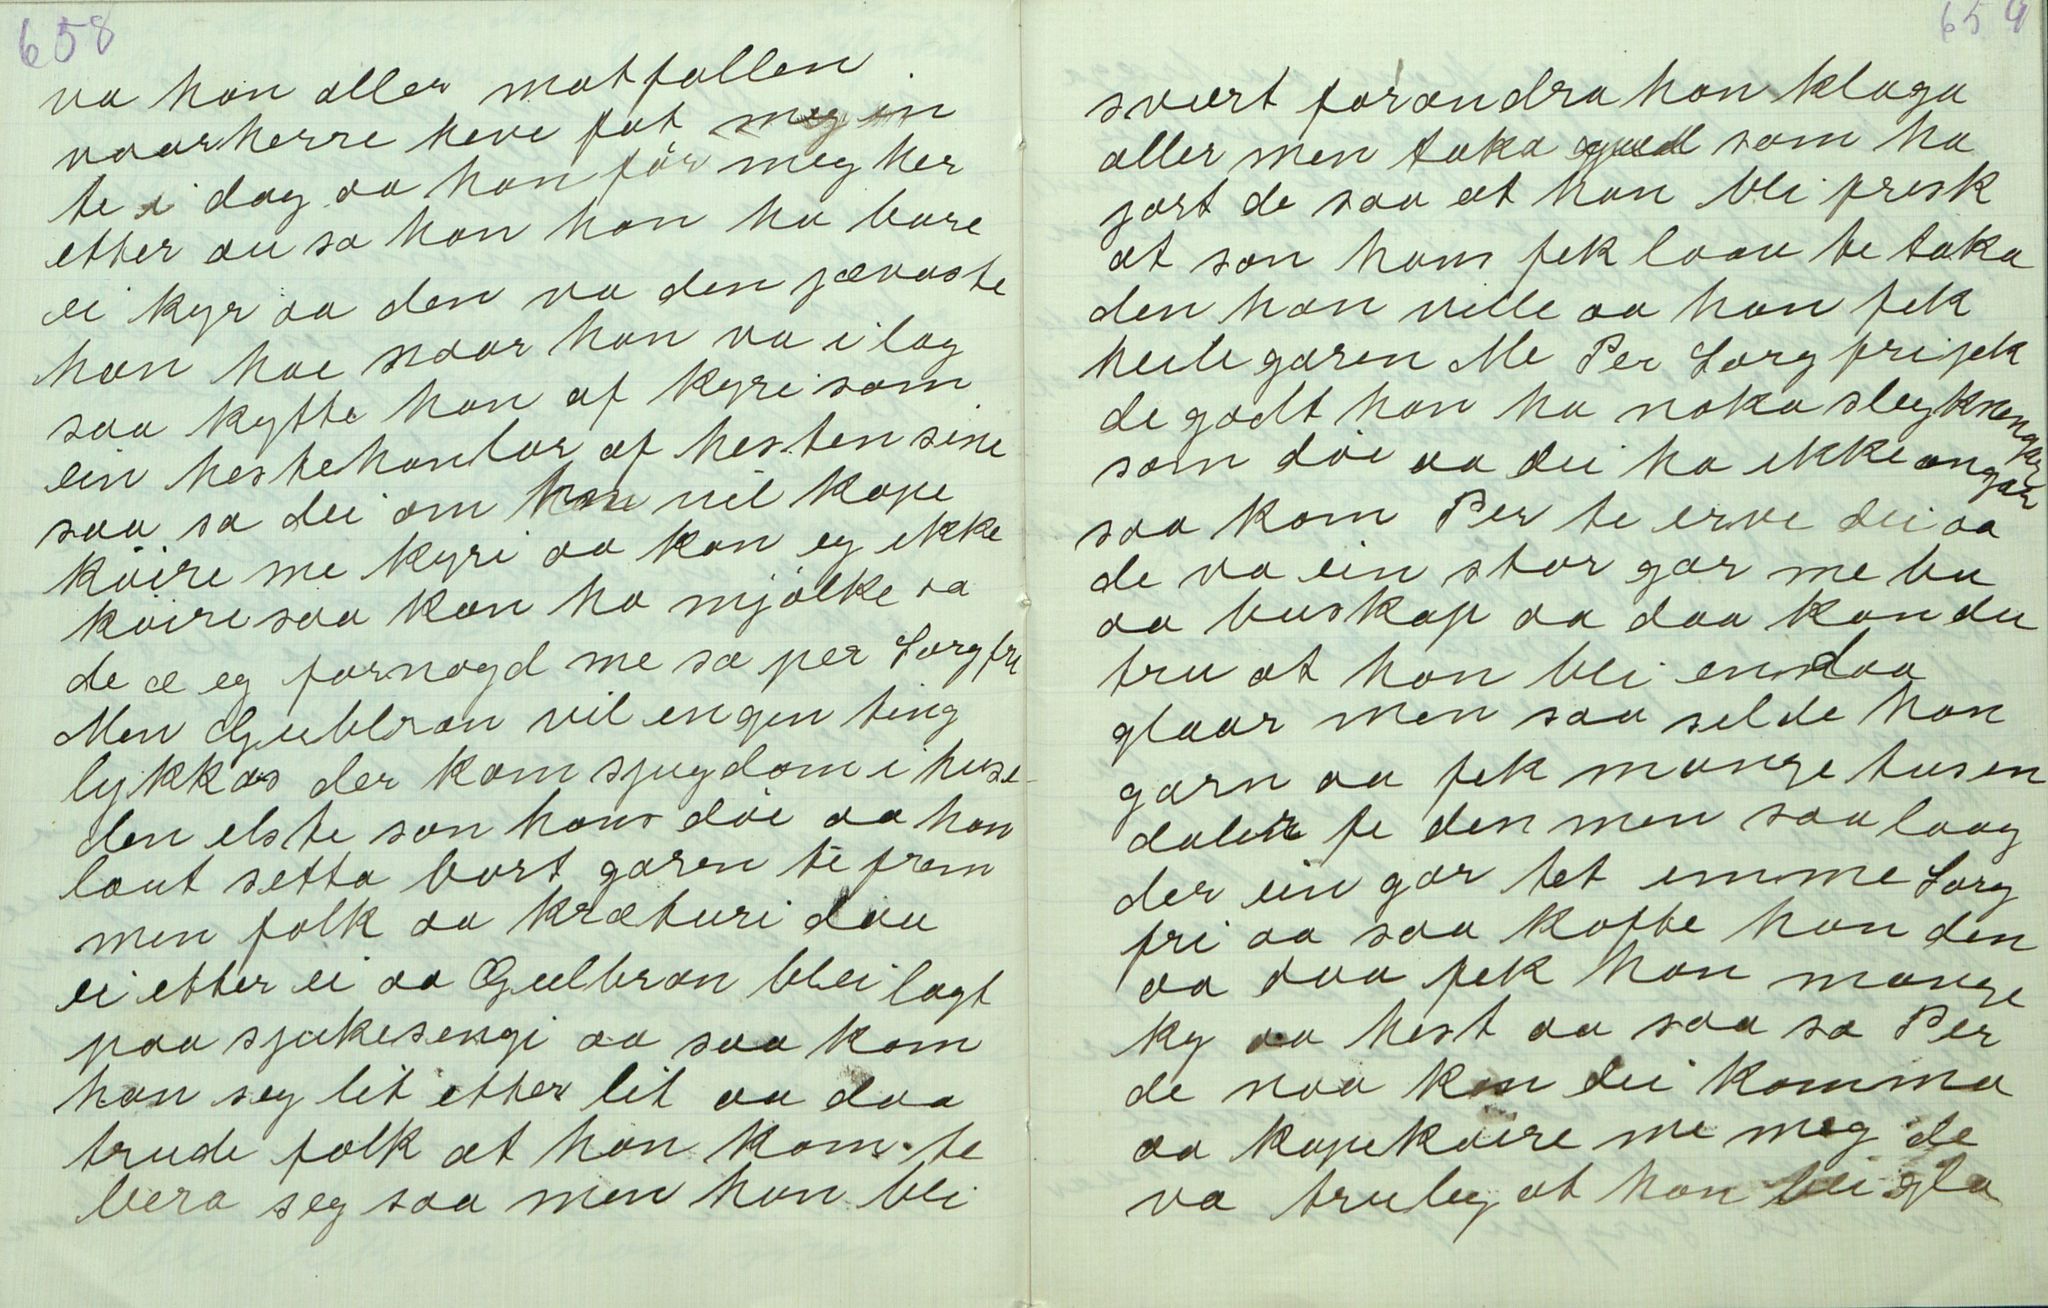 658
va han aller motfallen
vaarherre heve fat meg in
te i dag aa han før meg her
etter au sa han han ha bare
ei kyr aa den va den jævaste
han hae naar han va i lag
saa kytte han af kyri som
ein hestehanlar af hesten sine
saa sa dei om han vil kape
køire me kyri aa kan eg ikke
køire saa kan ha mjølke aa
de æ eg fornøgd me sa per Sorgfri
Men Gulbran vil engen ting
lykkas der kom sjugdom i huse
den elste son hans døe aa han
laut setta bort garen te frem
men folk aa kræturi dau
ei etter ei aa Gulbran blei lagt
paa sjukesengi aa saa kom
han seg lit etter lit aa daa
trude folk at han kom te
bera seg saa men han blei
659
svært forandra han klaga
aller men taka gud som ha
jort de saa at han blei fresk
at son hans fek laav te taka
den han ville aa han fek
heile garen Me Per Sorgfri jek
de godt han ha noka slegkninger
som døe aa dei ha ikke angar
saa kom Per te erve dei aa
de va ein stor gar me bu
aa buskap aa daa kan du
tru at han blei endaa
glaar men saa selde han
garn aa fek mange tusen
daler fe den men saa laag
der ein gar tet imme Sorg
fri aa saa køfte han den
aa daa fek han mange
ky aa hest aa saa sa Per
de naa kan dei komma
aa kapekøire me meg de
va truleg at han blei gla